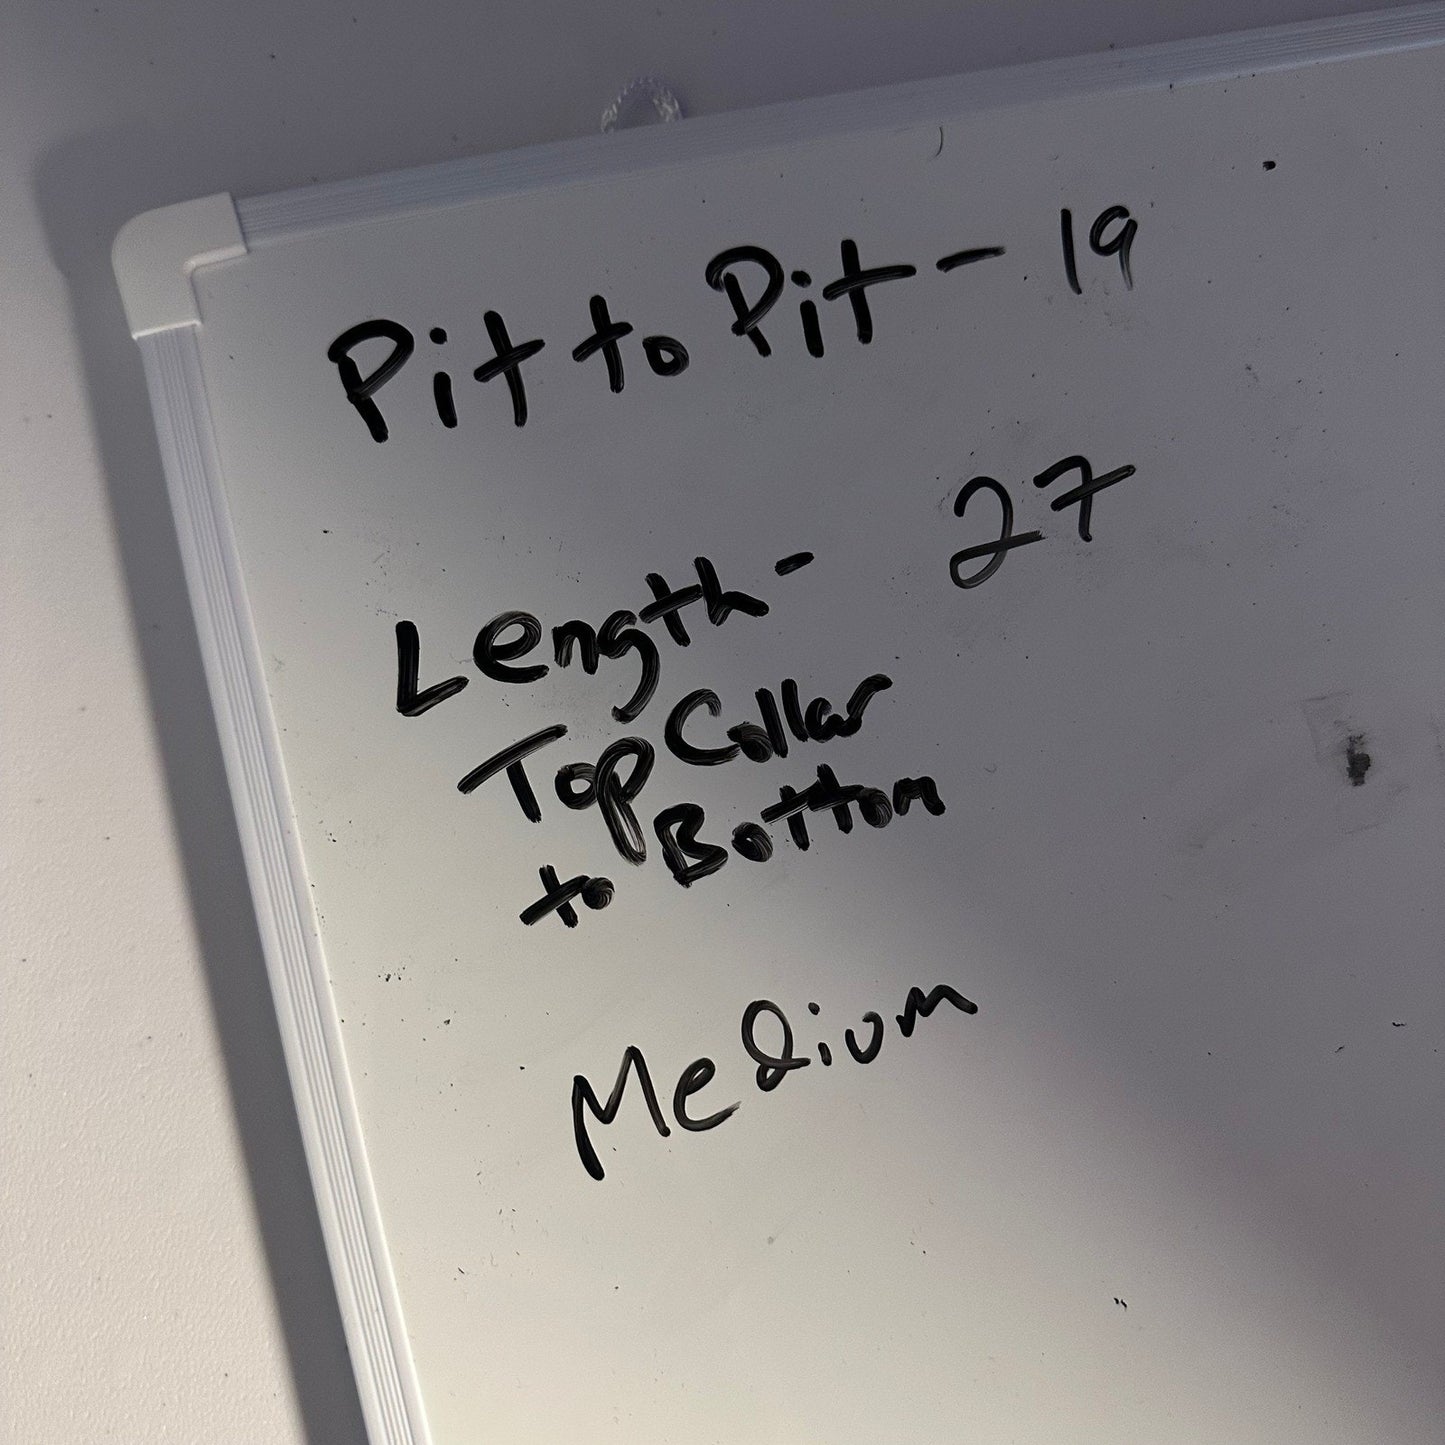 Pit to Pit - 19
Length - 27
Top Collar
to Bottom
Medium